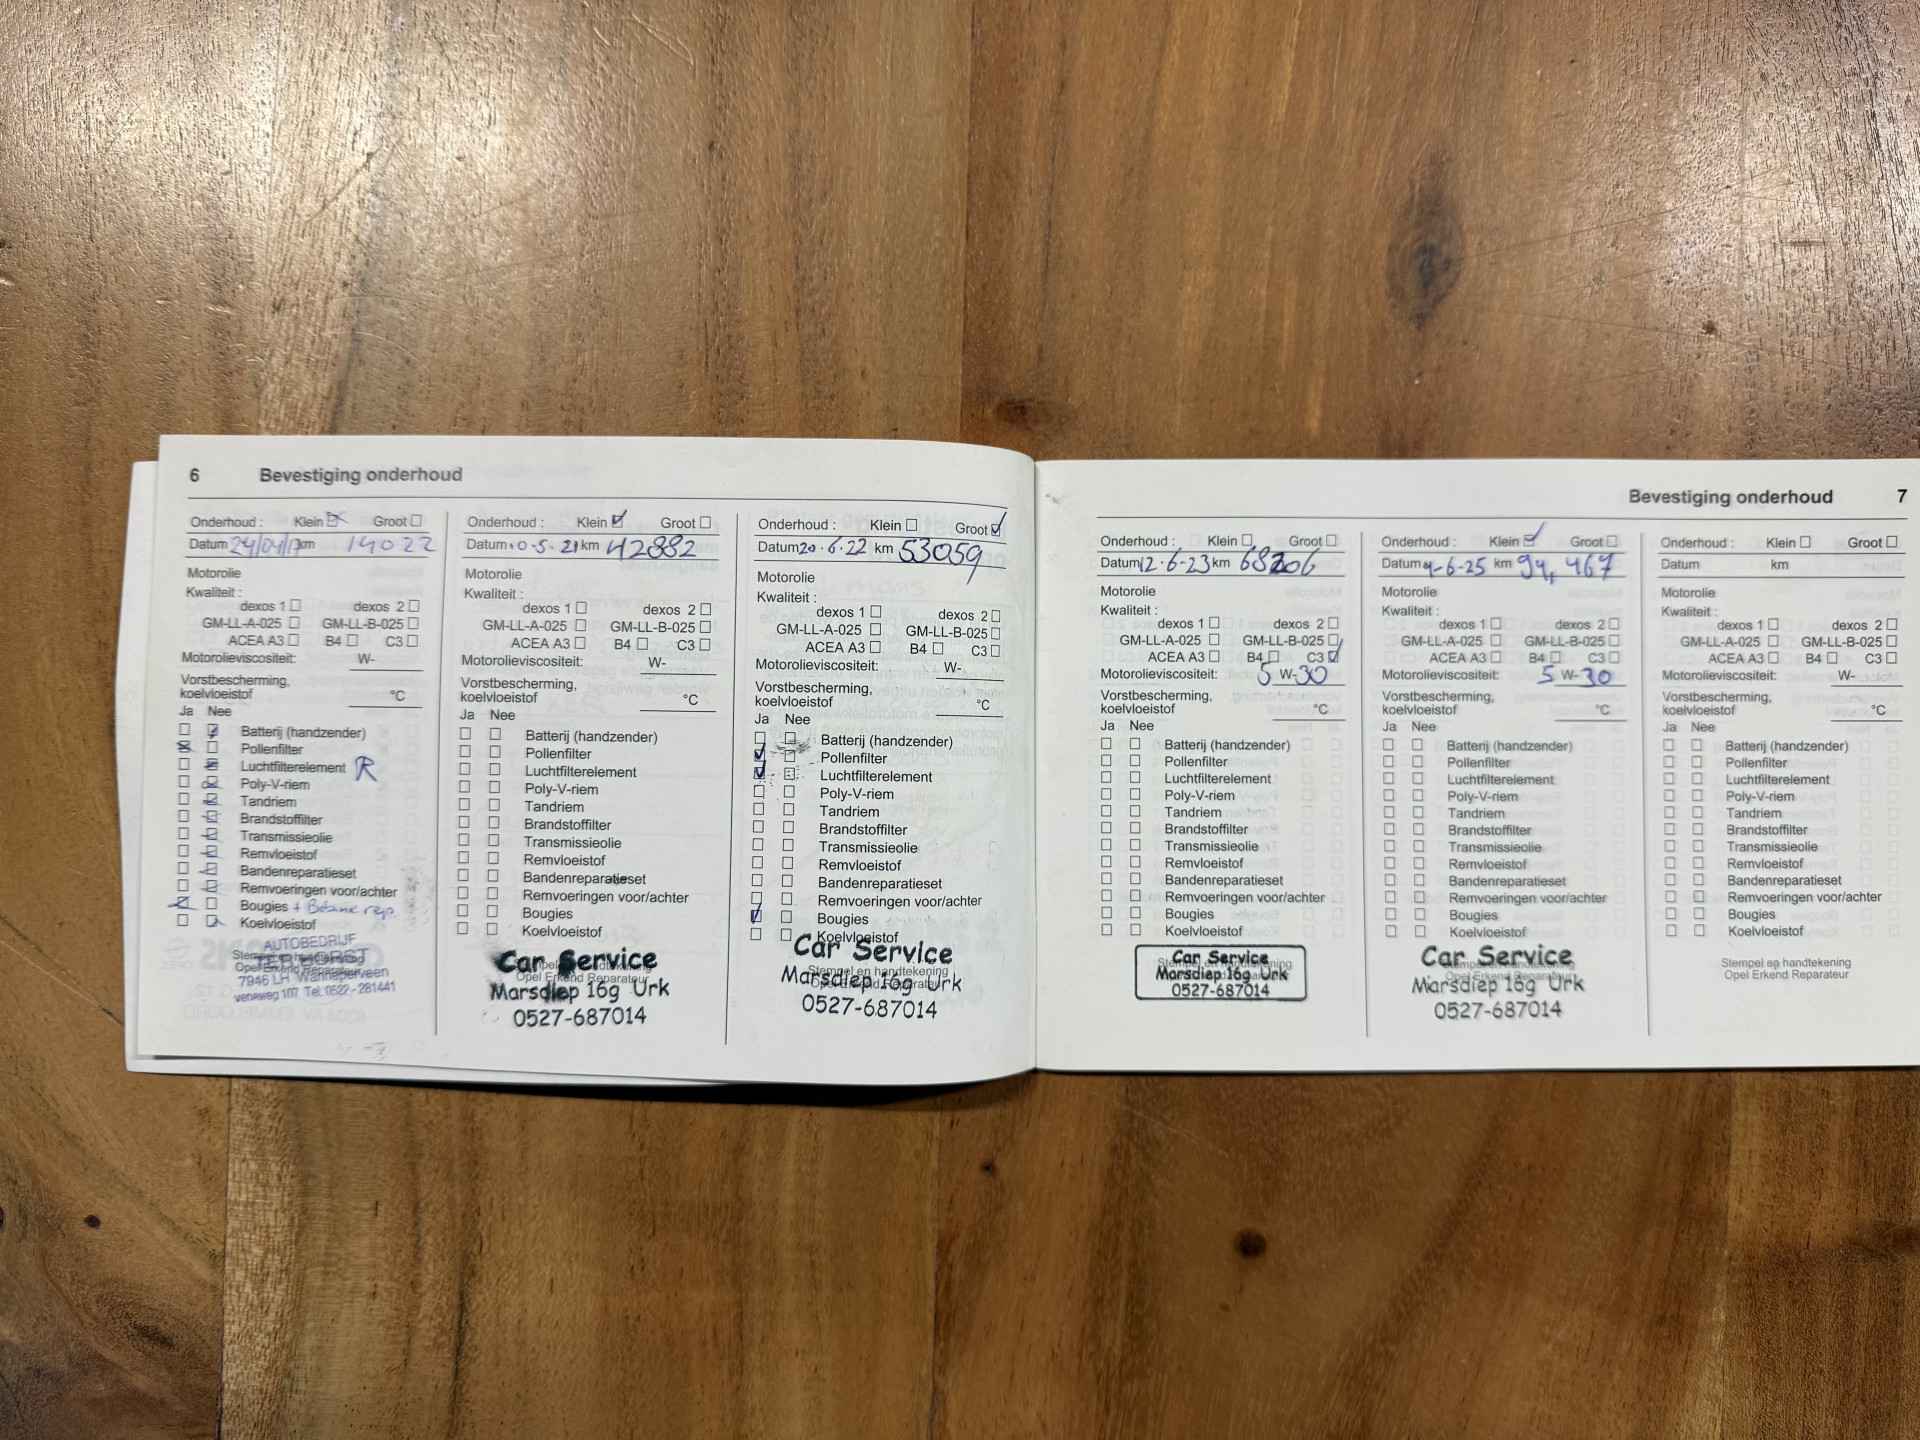 6 Bevestiging onderhoud
Onderhoud : Klein Groot
Datum 24/04/17 km 14022
Motorolie
Kwaliteit :
dexos 1 dexos 2
GM-LL-A-025 GM-LL-B-025
ACEA A3 B4 C3
Motorolieviscositeit: W-
Vorstbescherming,
koelvloeistof °C
Ja Nee
Batterij (handzender)
Pollenfilter
Luchtfilterelement R
Poly-V-riem
Tandriem
Brandstoffilter
Transmissieolie
Remvloeistof
Bandenreparatieset
Remvoeringen voor/achter
Bougies +
Koelvloeistof
AUTOBEDRIJF
Stempel en handtekening
Opel Erkend Reparateur
7946 LH Wanneperveen
veneweg 107 Tel. 0522-281441
Onderhoud : Klein Groot
Datum 10-5-21 km 42882
Motorolie
Kwaliteit :
dexos 1 dexos 2
GM-LL-A-025 GM-LL-B-025
ACEA A3 B4 C3
Motorolieviscositeit: W-
Vorstbescherming,
koelvloeistof °C
Ja Nee
Batterij (handzender)
Pollenfilter
Luchtfilterelement
Poly-V-riem
Tandriem
Brandstoffilter
Transmissieolie
Remvloeistof
Bandenreparatieset
Remvoeringen voor/achter
Bougies
Koelvloeistof
Car Service
Stempel en handtekening
Opel Erkend Reparateur
Marsdiep 16g Urk
0527-687014
Onderhoud : Klein Groot
Datum 20-6-22 km 53059
Motorolie
Kwaliteit :
dexos 1 dexos 2
GM-LL-A-025 GM-LL-B-025
ACEA A3 B4 C3
Motorolieviscositeit: W-
Vorstbescherming,
koelvloeistof °C
Ja Nee
Batterij (handzender)
Pollenfilter
Luchtfilterelement
Poly-V-riem
Tandriem
Brandstoffilter
Transmissieolie
Remvloeistof
Bandenreparatieset
Remvoeringen voor/achter
Bougies
Koelvloeistof
Car Service
Stempel en handtekening
Opel Erkend Reparateur
Marsdiep 16g Urk
0527-687014
Bevestiging onderhoud 7
Onderhoud : Klein Groot
Datum 12-6-23 km
Motorolie
Kwaliteit :
dexos 1 dexos 2
GM-LL-A-025 GM-LL-B-025
ACEA A3 B4 C3
Motorolieviscositeit: 5 W-30
Vorstbescherming,
koelvloeistof °C
Ja Nee
Batterij (handzender)
Pollenfilter
Luchtfilterelement
Poly-V-riem
Tandriem
Brandstoffilter
Transmissieolie
Remvloeistof
Bandenreparatieset
Remvoeringen voor/achter
Bougies
Koelvloeistof
Car Service
Stempel en handtekening
Marsdiep 16g Urk
0527-687014
Onderhoud : Klein Groot
Datum 4-6-25 km 94,467
Motorolie
Kwaliteit :
dexos 1 dexos 2
GM-LL-A-025 GM-LL-B-025
ACEA A3 B4 C3
Motorolieviscositeit: 5 W-30
Vorstbescherming,
koelvloeistof °C
Ja Nee
Batterij (handzender)
Pollenfilter
Luchtfilterelement
Poly-V-riem
Tandriem
Brandstoffilter
Transmissieolie
Remvloeistof
Bandenreparatieset
Remvoeringen voor/achter
Bougies
Koelvloeistof
Car Service
Stempel en handtekening
Opel Erkend Reparateur
Marsdiep 16g Urk
0527-687014
Onderhoud : Klein Groot
Datum km
Motorolie
Kwaliteit :
dexos 1 dexos 2
GM-LL-A-025 GM-LL-B-025
ACEA A3 B4 C3
Motorolieviscositeit: W-
Vorstbescherming,
koelvloeistof °C
Ja Nee
Batterij (handzender)
Pollenfilter
Luchtfilterelement
Poly-V-riem
Tandriem
Brandstoffilter
Transmissieolie
Remvloeistof
Bandenreparatieset
Remvoeringen voor/achter
Bougies
Koelvloeistof
Stempel en handtekening
Opel Erkend Reparateur